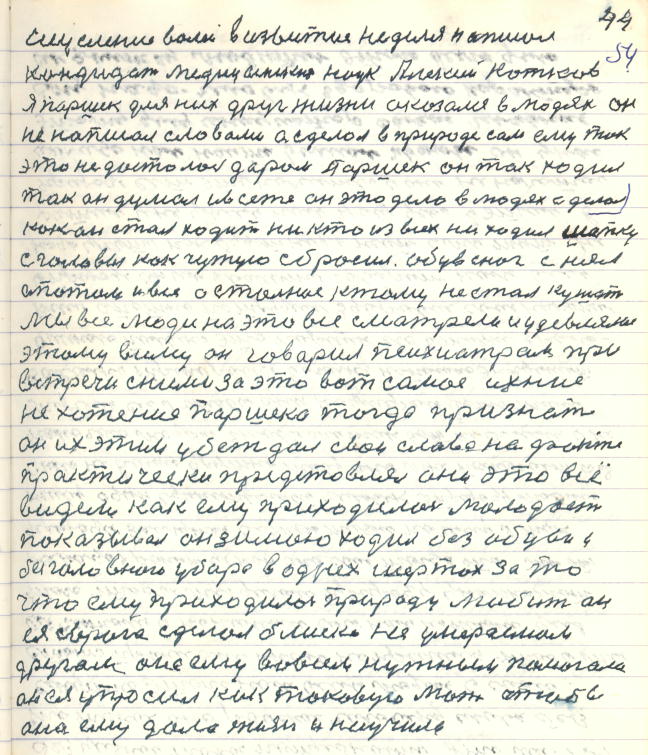 44
54
сицсление волей в извитие неделя написал
кондидат медицинских наук Алексий Котков
я паршек для них друг жизни аказался в людях он
не написал словами а сделал в природе сам ему так
это недосталось даром Паршек он так ходил
так он думал и всете он это дело в людях сделал
как он стал ходит никто из всех ни ходил шапку
с головы как чужую сбросил. обув с ног с нял
апотом и все остольное к тому не стал кушат
Мы все люди на это все сматрели и удевляяс
этому всиму он говарил психиатрам при
встречи с ними за это вот самое ихние
не хотение Паршека тогда признат
он их этим убеждал свои слова на факте
практически придставлял они это всё
видели как ему приходилос молодост
показывал он зимою ходил без обуви и
безголовного убора в одних шертах за то
что ему приходилос природу любит он
ея сврога сделал блиско не умераемом
другам она ему вовсем нужным помогала
он ея упросил как таковую мат чтобы
она ему дала жизн и научила